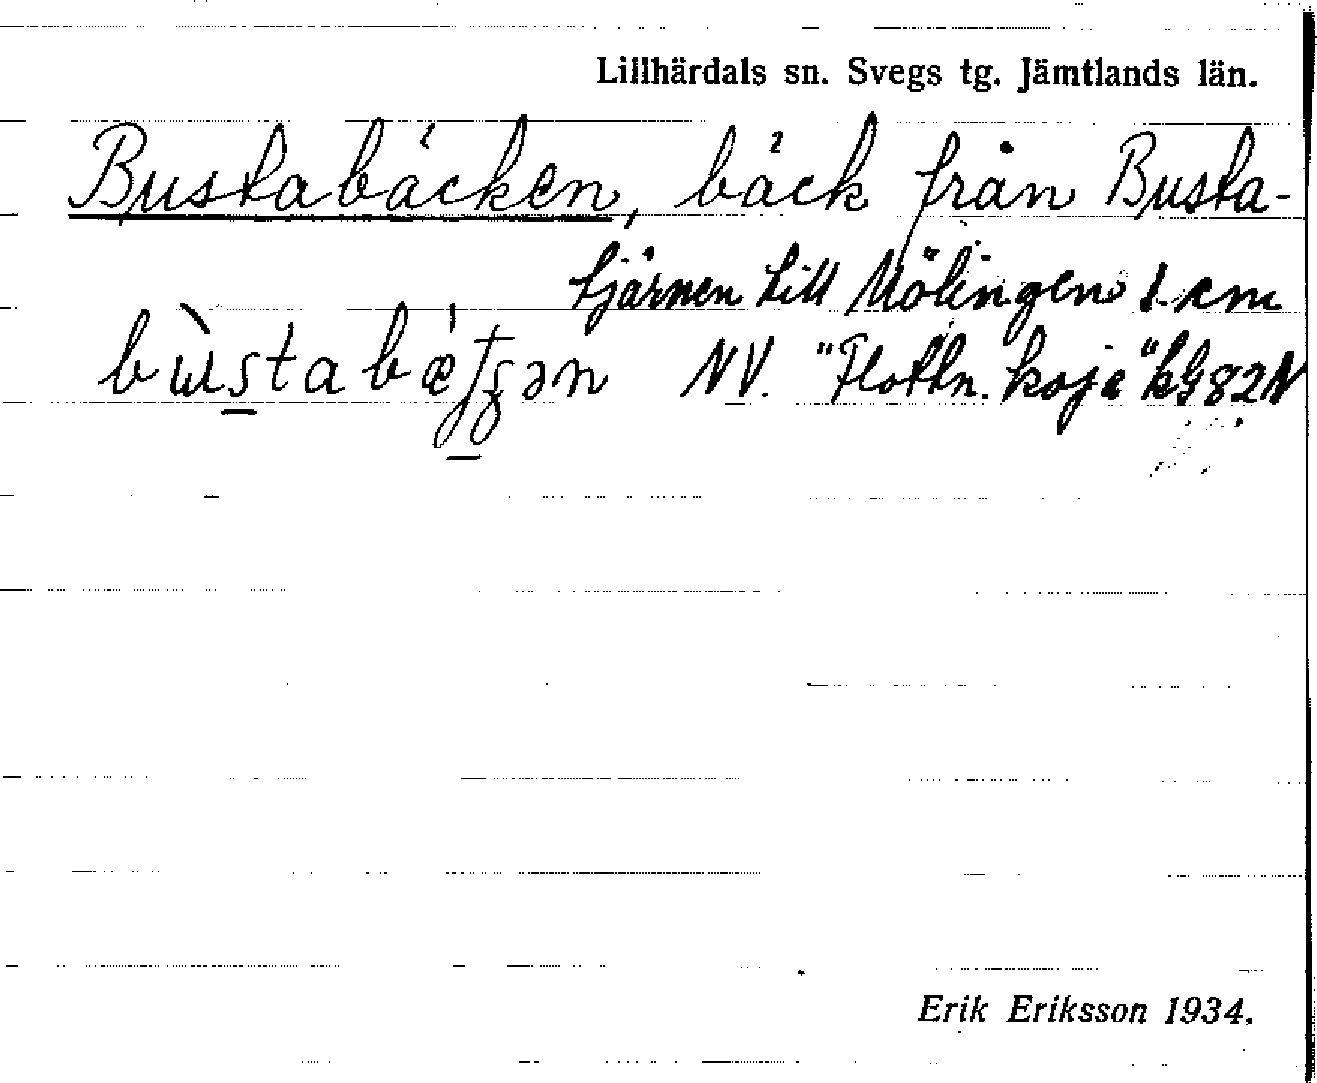 Lillhärdals sn. Svegs tg. Jämtlands län.
Bustabäcken, bäck från Busta-
tjärnen till Mölingen 1 cm
NV. "Flottn. koja" kG82N
Erik Eriksson 1934.